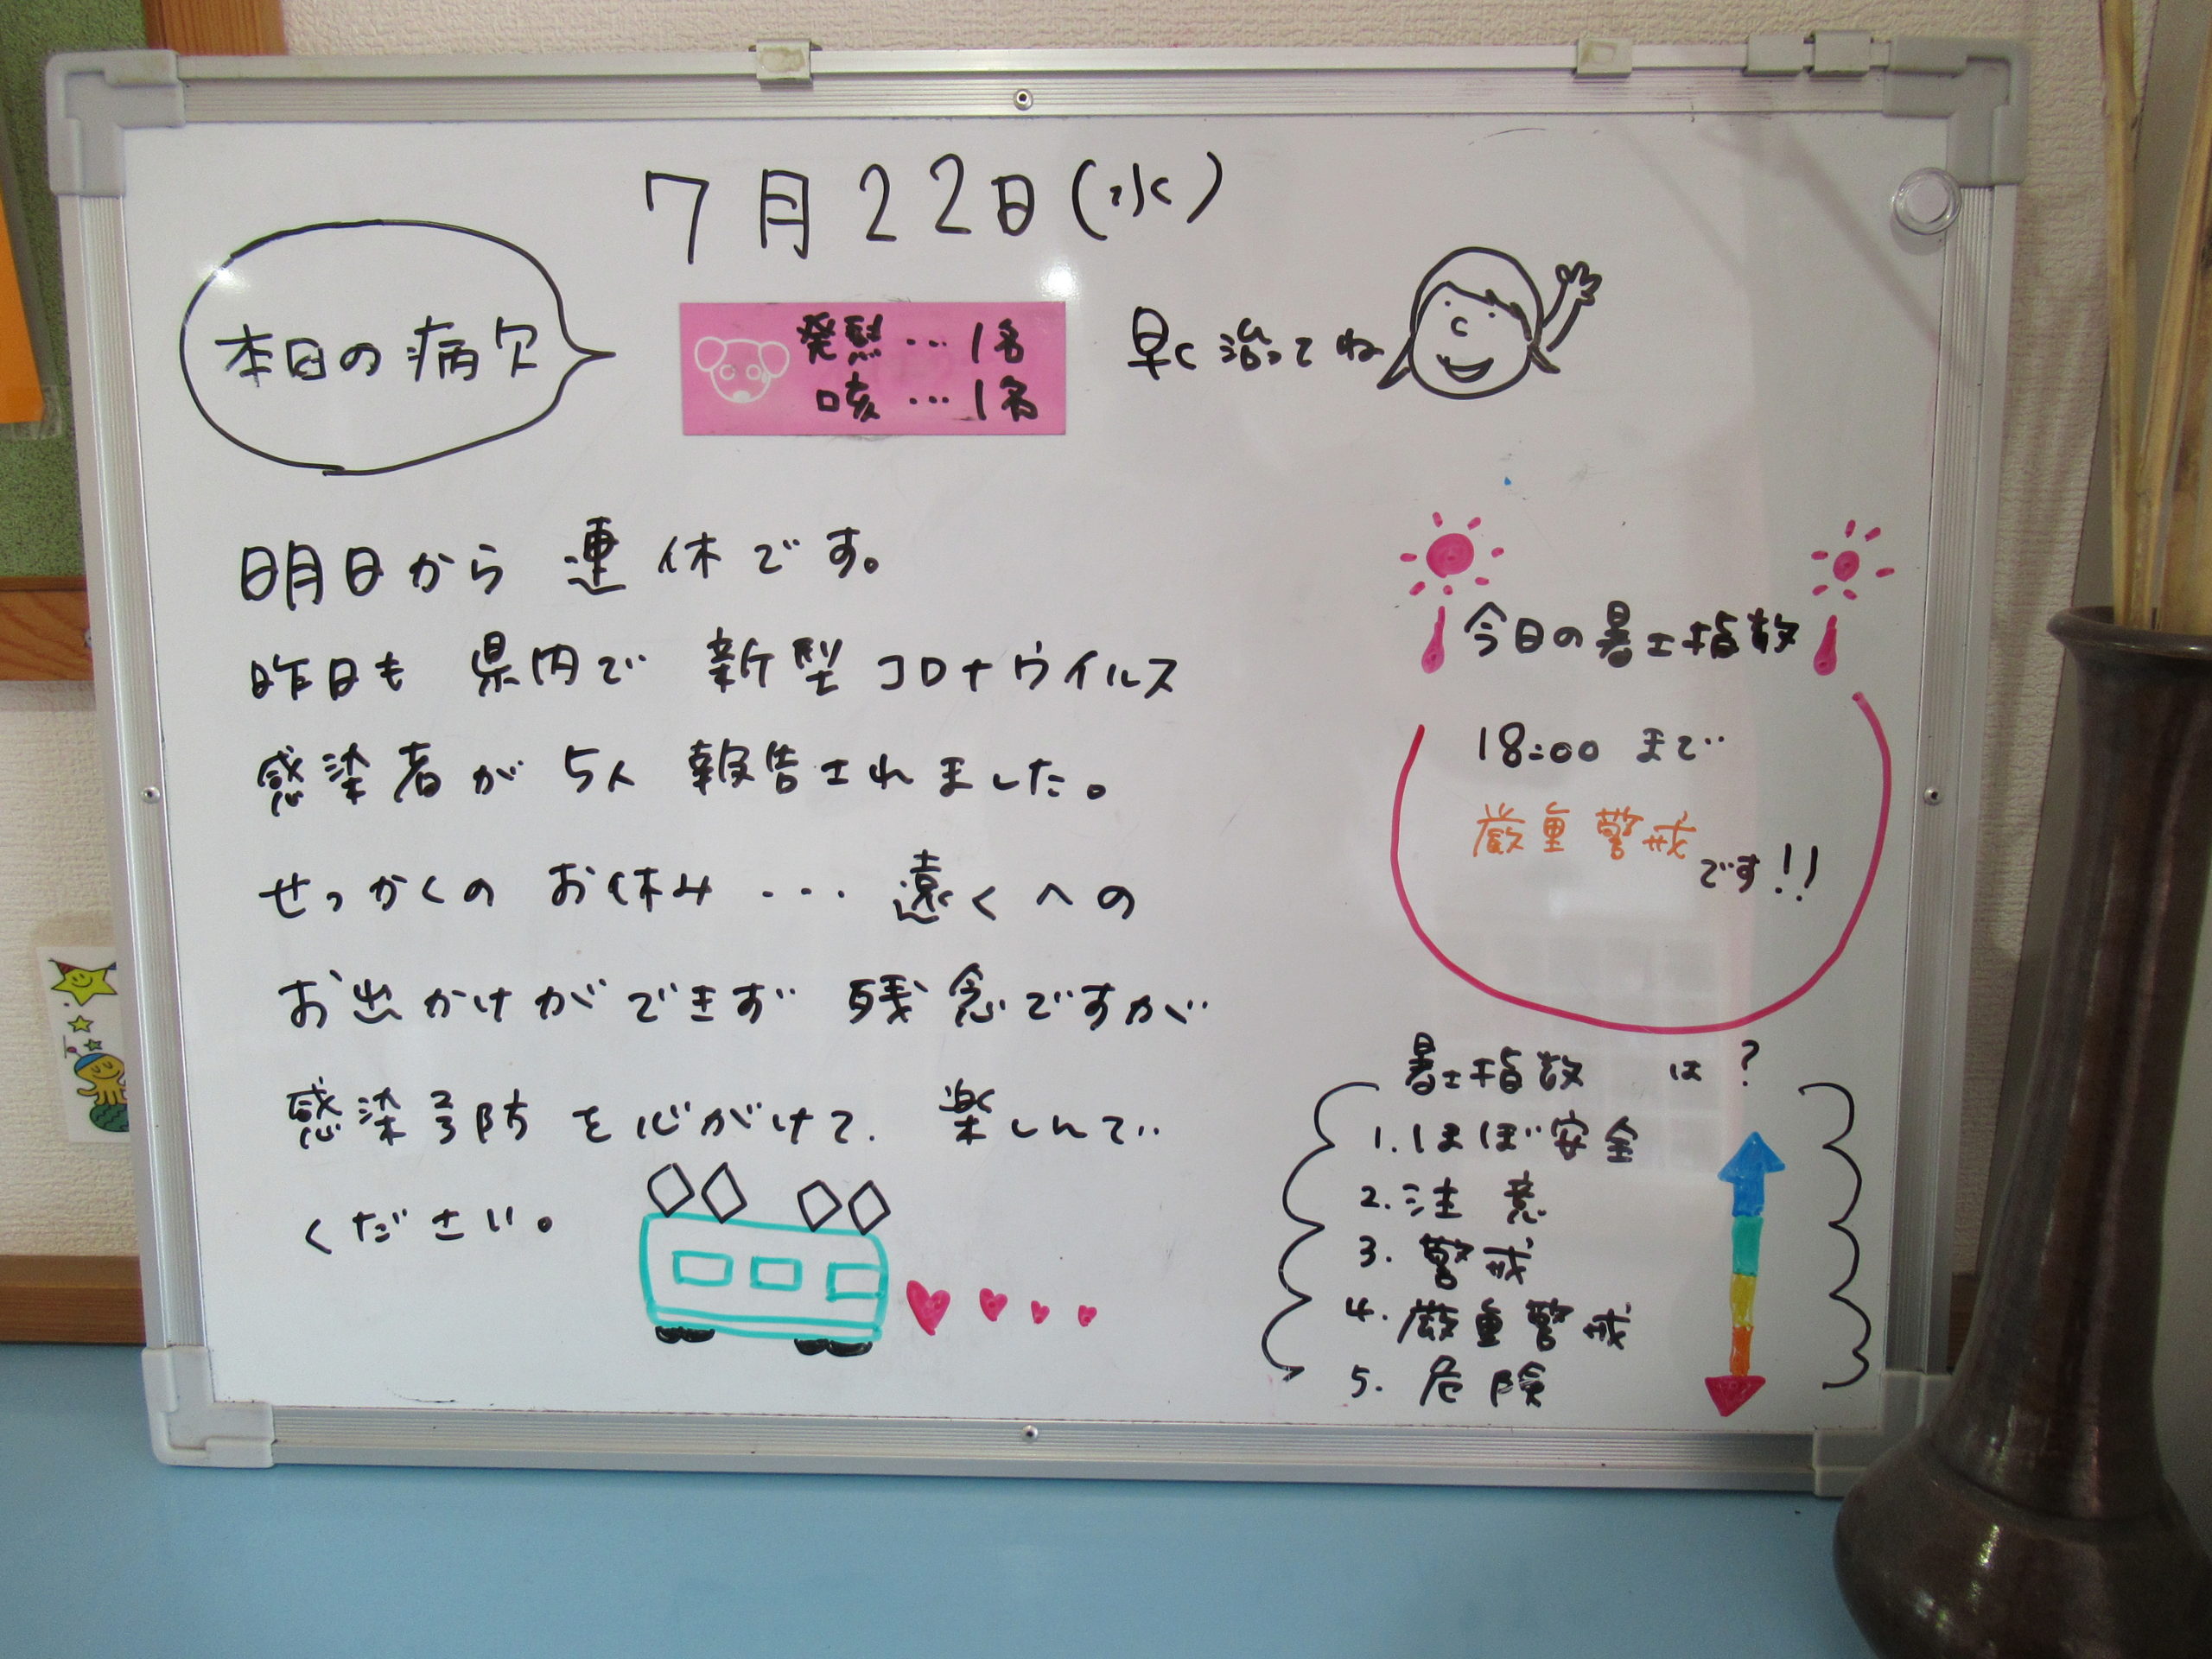 7月22日(水)
本日の病欠
発熱…1名
咳…1名
早く治ってね
明日から 連休です。
昨日も 県内で 新型コロナウイルス
感染者が 5人 報告されました。
せっかくの お休み・・・遠くへの
お出かけができず 残念ですが
感染予防を心がけて、楽しんで
ください。
今日の暑さ指数
18:00 まで
厳重警戒です!!
暑さ指数 は?
1.ほぼ安全
2.注意
3.警戒
4.厳重警戒
5.危険